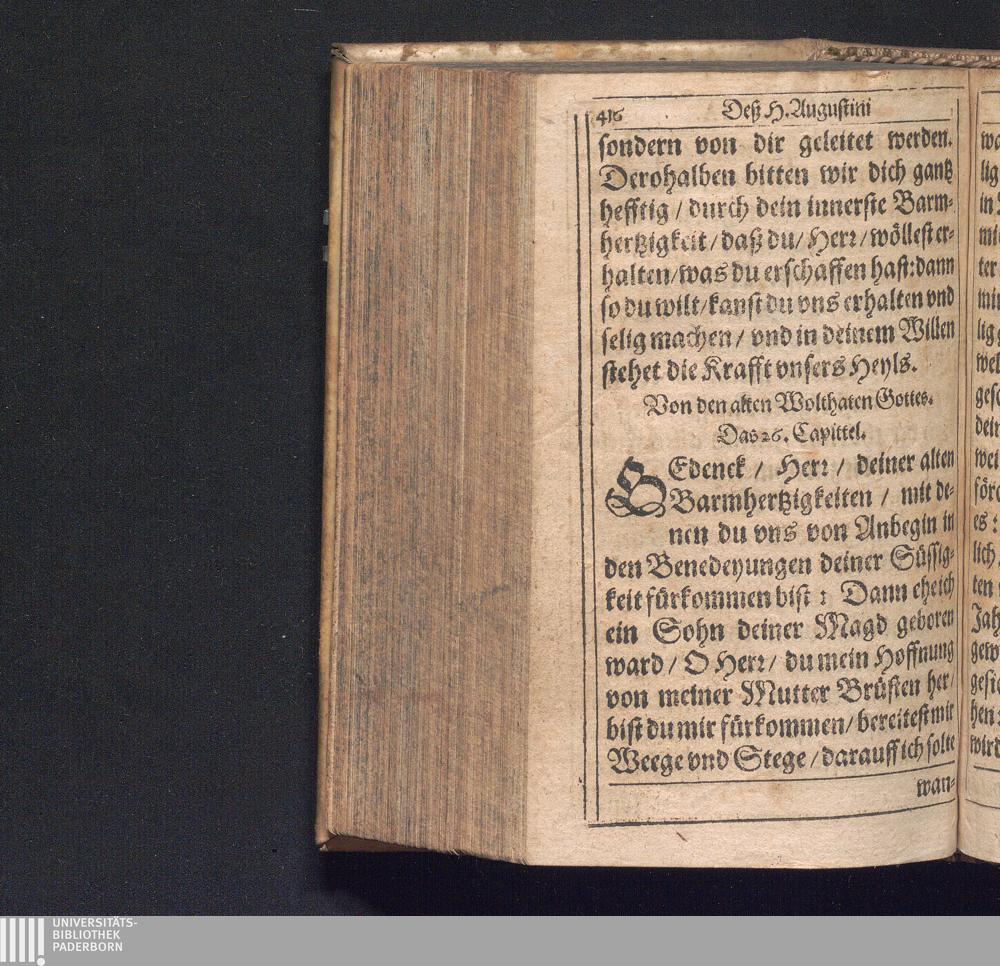 416 Deß H. Augustini
sondern von dir geleitet werden.
Derohalben bitten wir dich gantz
hefftig / durch dein innerste Barm-
hertzigkeit / daß du / Herr / wöllest er-
halten / was du erschaffen hast: dann
so du wilt / kanst du vns erhalten vnd
selig machen / vnd in deinem Willen
stehet die Krafft vnsers Heyls.
Von den alten Wolthaten Gottes.
Das 26. Capittel.
GEdenck / Herr / deiner alten
Barmhertzigkeiten / mit de-
nen du vns von Anbegin in
den Benedeyungen deiner Süssig-
keit fürkommen bist: Dann ehe ich
ein Sohn deiner Magd geboren
ward / O Herr / du mein Hoffnung
von meiner Mutter Brüsten her /
bist du mir fürkommen / bereitest mir
Weege vnd Stege / darauff ich solte
wan-
UNIVERSITÄTS-
BIBLIOTHEK
PADERBORN